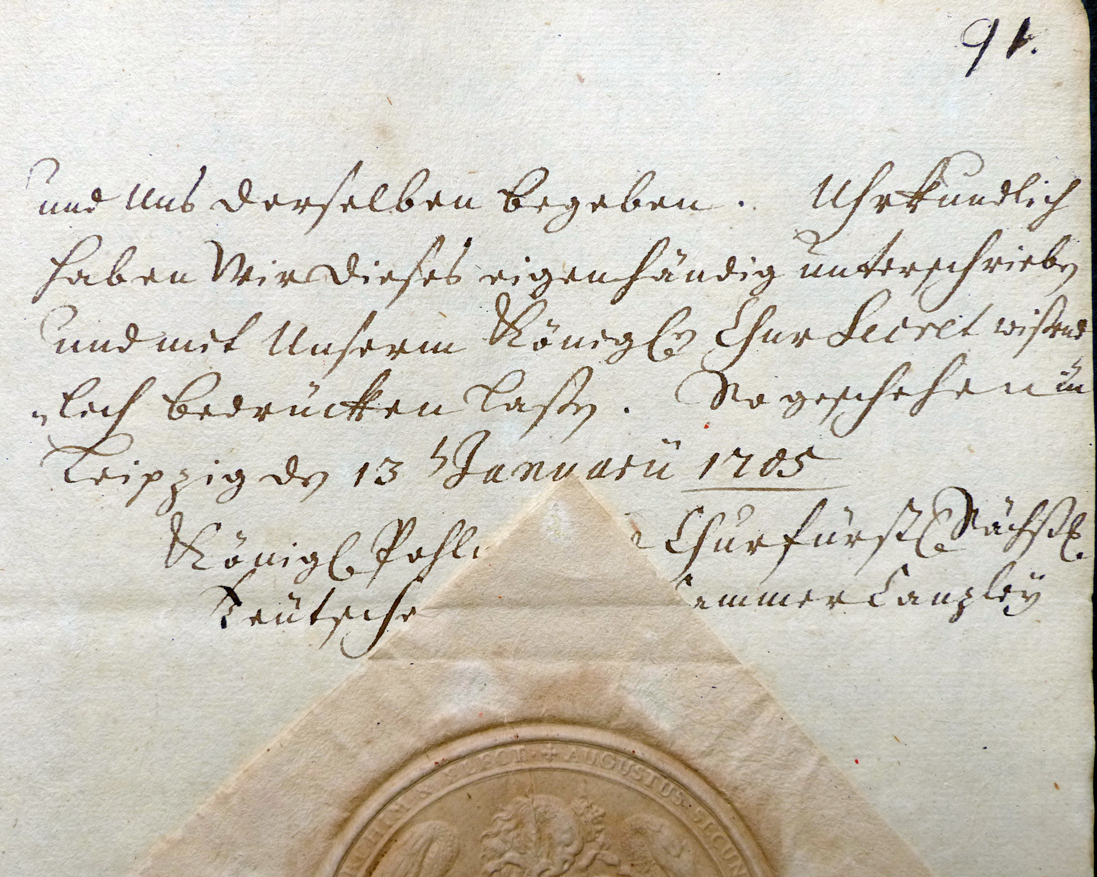 91.
und Uns derselben begeben. Uhrkundlich
haben Wir dieses eigenhändig unterschrieben
und mit Unserm Königl. Chur Secret wißend
lich bedrücken laßen. So geschehen in
Leipzig den 13 Januarii 1705
Königl. Pohln Churfürstl. Sächß.
Teütsche ammer Canzley
ELECT. + AUGUSTUS. SECUN